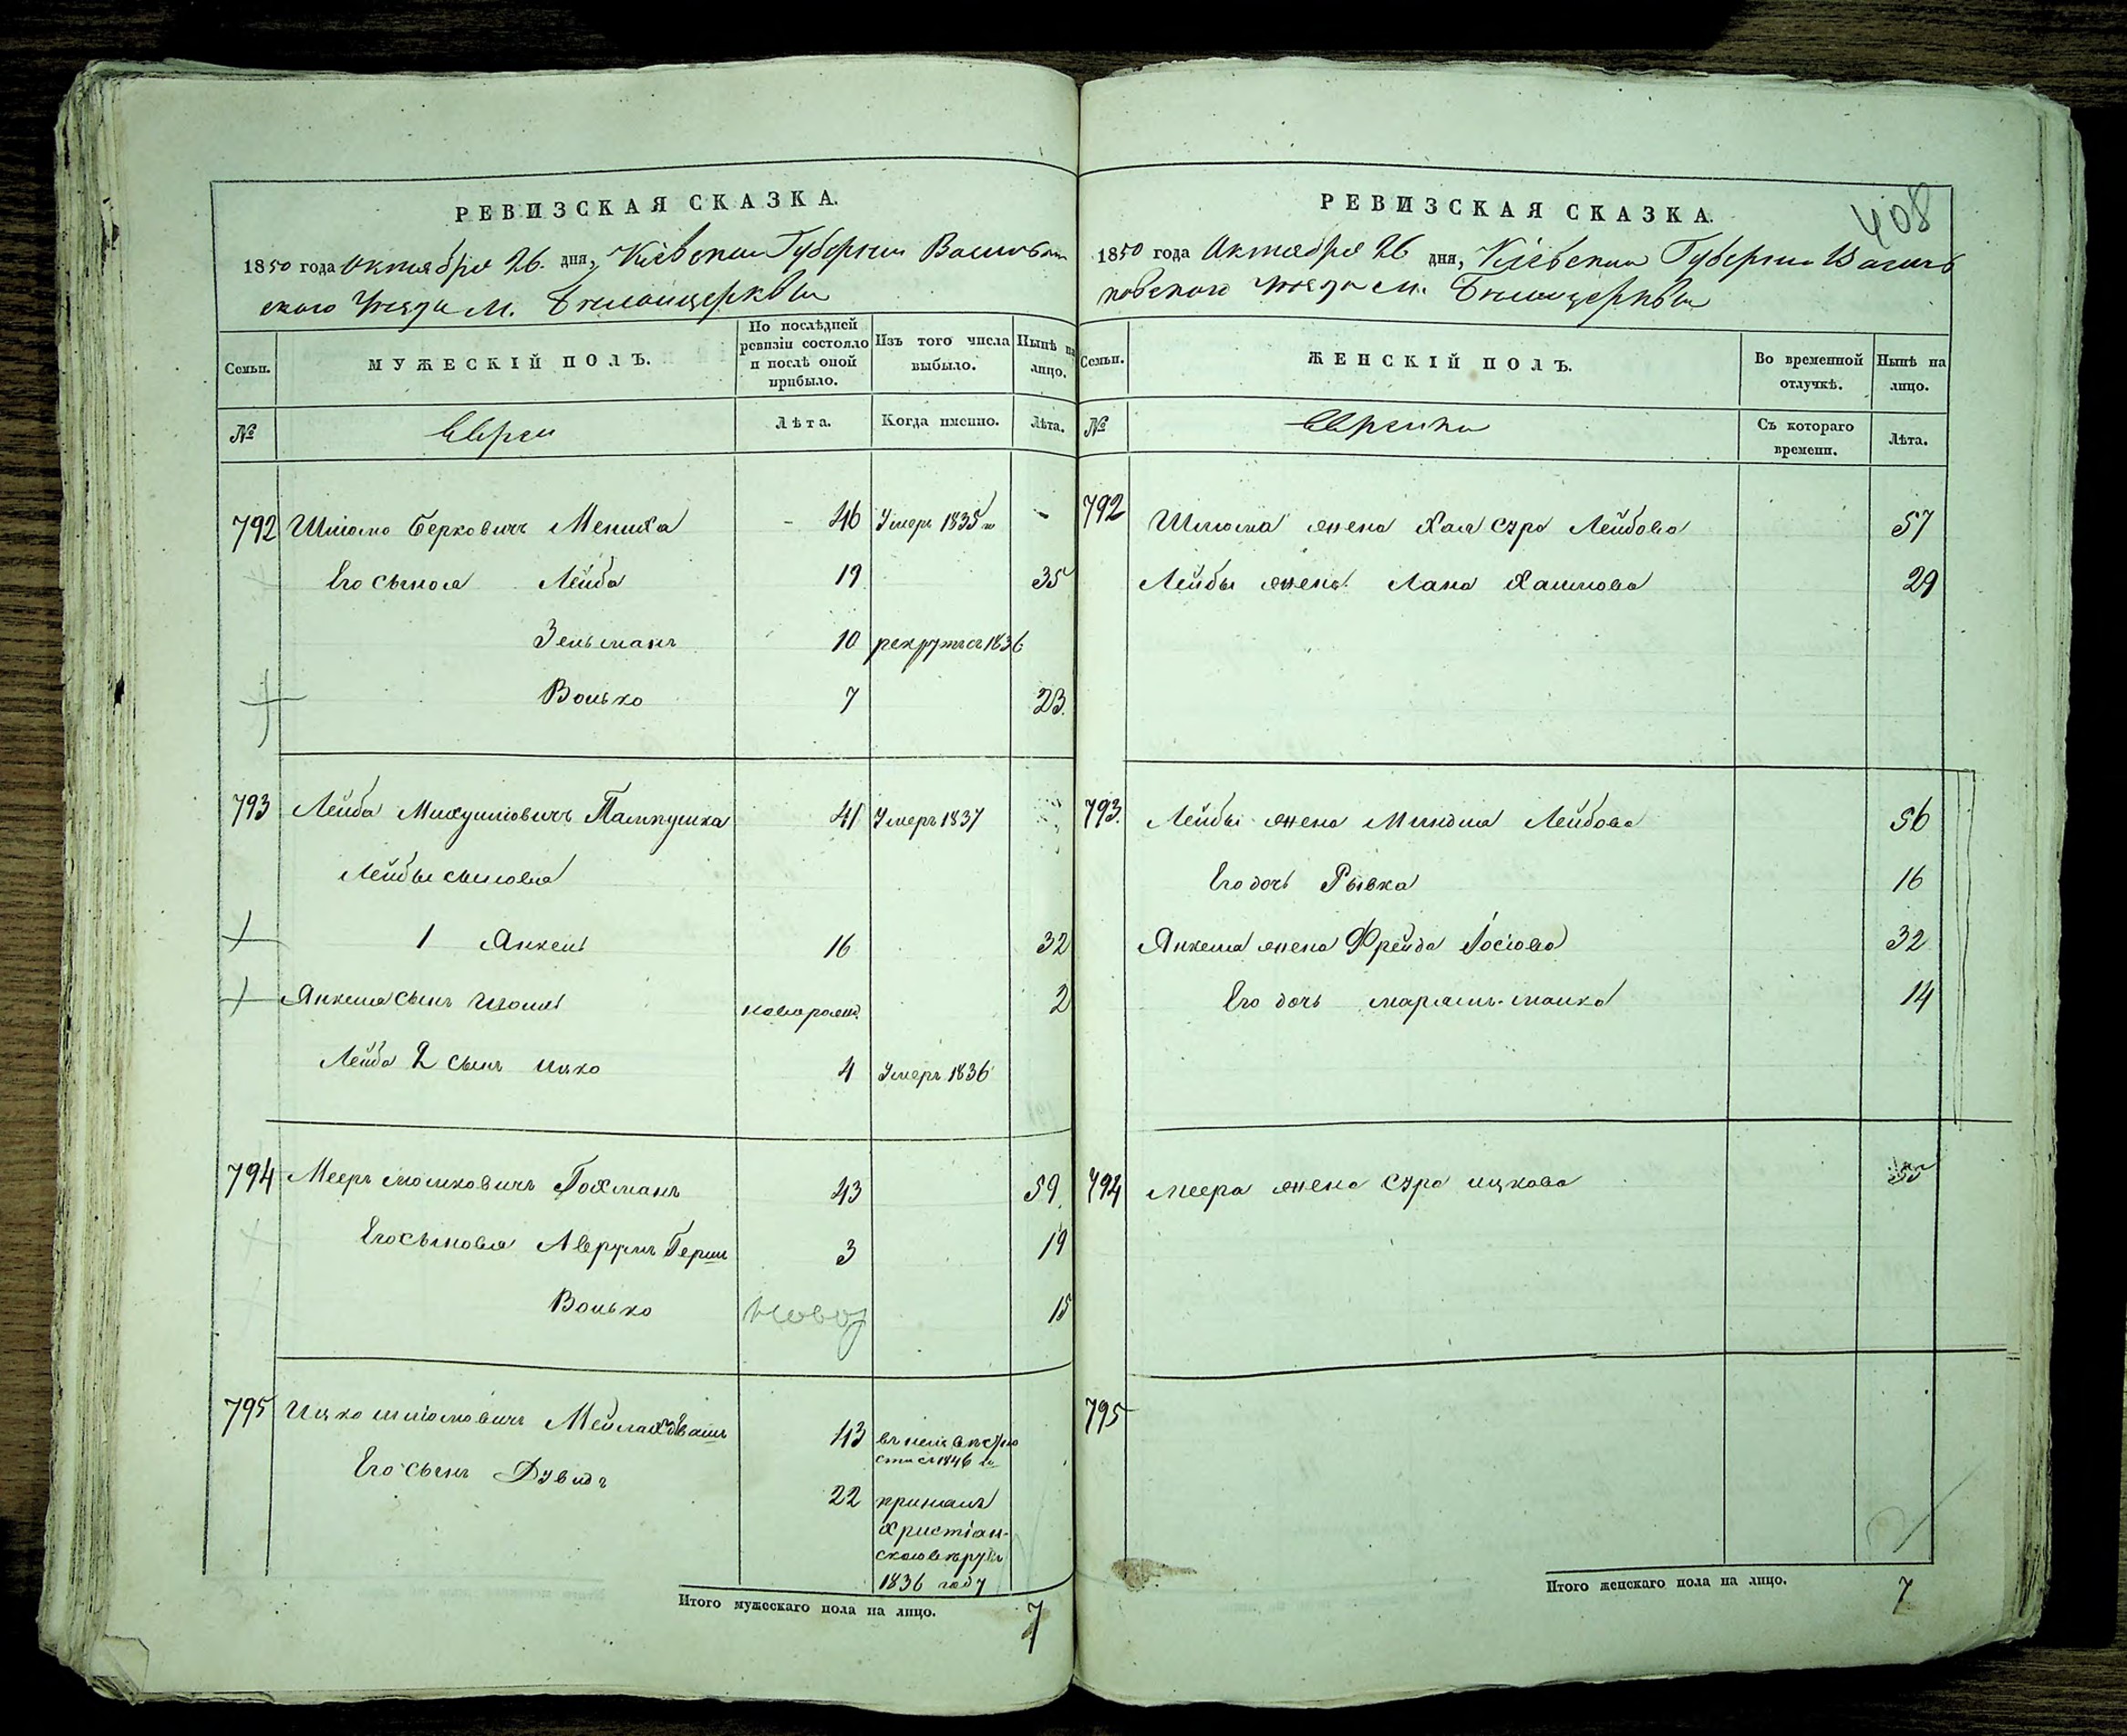 РЕВИЗСКАЯ СКАЗКА.
1850 года Октября 26. дня, Кіевской Губерніи Васильков
ского Уѣзда М. Бѣлойцеркви
Семьи. МУЖЕСКІЙ ПОЛЪ. По послѣдней ревизіи состояло и послѣ оной прибыло. Изъ того числа выбыло. Нынѣ на лицо.
№ Евреи Лѣта. Когда именно. Лѣта.
792 Шліома Берковичъ Мениха - 46 Умеръ 1835 -
Его сыновя Лейба 19 35
Зельманъ 10 рекрутъ съ 1836
Волько 7 23.
793 Лейба Михуиліовичъ Пампушка 41 Умеръ 1837
Лейбы сыновья
1 Янкель 16 32
Янкеля сынъ новорожд. 2
Лейба 2 сынъ Ицко 4 Умеръ 1836
794 Мееръ Мошковичъ Гохманъ 43 59.
Его сыновья Аврумъ Герш 3 19
Волько новор 15
795 Ицко Шліомовичъ 43 съ 1846
Его сынъ Дувидъ 22 принялъ
Христіан-
скою вѣру въ
1836 году
Итого мужескаго пола на лицо. 7
РЕВИЗСКАЯ СКАЗКА. 408
1850 года Октября 26 дня, Кіевской Губерніи Василь
ковского Уѣзда м. Бѣлойцеркви
Семьи. ЖЕНСКІЙ ПОЛЪ. Во временной отлучкѣ. Нынѣ на лицо.
№ Еврейки Съ котораго времени. Лѣта.
792 Шліома жена Хая Сура Лейбова 57
Лейбы жена Хаимова 29
793. Лейбы жена Миндля Лейбова 56
Его дочь Рывка 16
Янкеля жена Фрейда Іосіова 32
Его дочь Марьямъ-Малка 14
794 Меера жена Сура Ицкова 55
795
Итого женскаго пола на лицо. 7